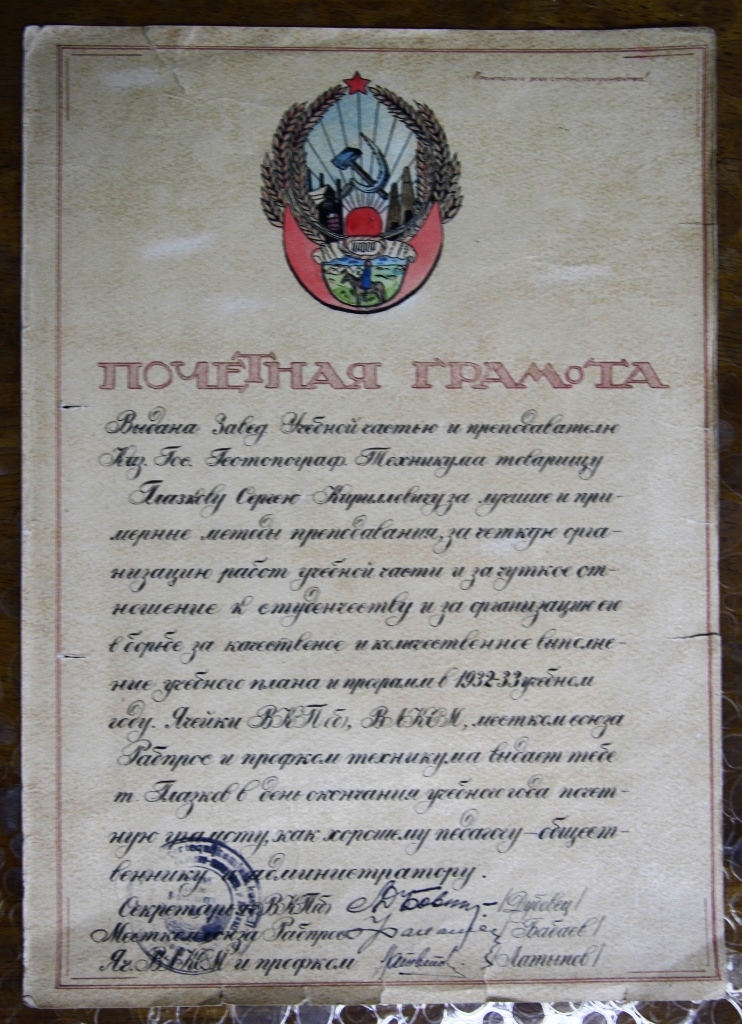 ПОЧЕТНАЯ ГРАМОТА
Выдана Завед Учебной частью и преподавателю
Каз. Гос. Геотопограф. Техникума товарищу
Глазкову Сергею Кирилловичу за лучшие и при-
мерные методы преподавания, за четкую орга-
низацию работ учебной части и за чуткое от-
ношение к студенчеству и за организацию его
в борьбе за качественое и количественное выполне-
ние учебного плана и программ в 1932-33 учебном
году. Ячейки ВКП(б), ВЛКСМ, местком союза
Рабпрос и профком техникума выдает тебе
т. Глазков в день окончания учебного года почет-
ную грамоту, как хорошему педагогу-общест-
веннику и администратору.
Секретарь ВКП(б) /Дубовец/
Местком союза Рабпрос /Бабаев/
Яч. ВЛКСМ и профком /Латыпов/